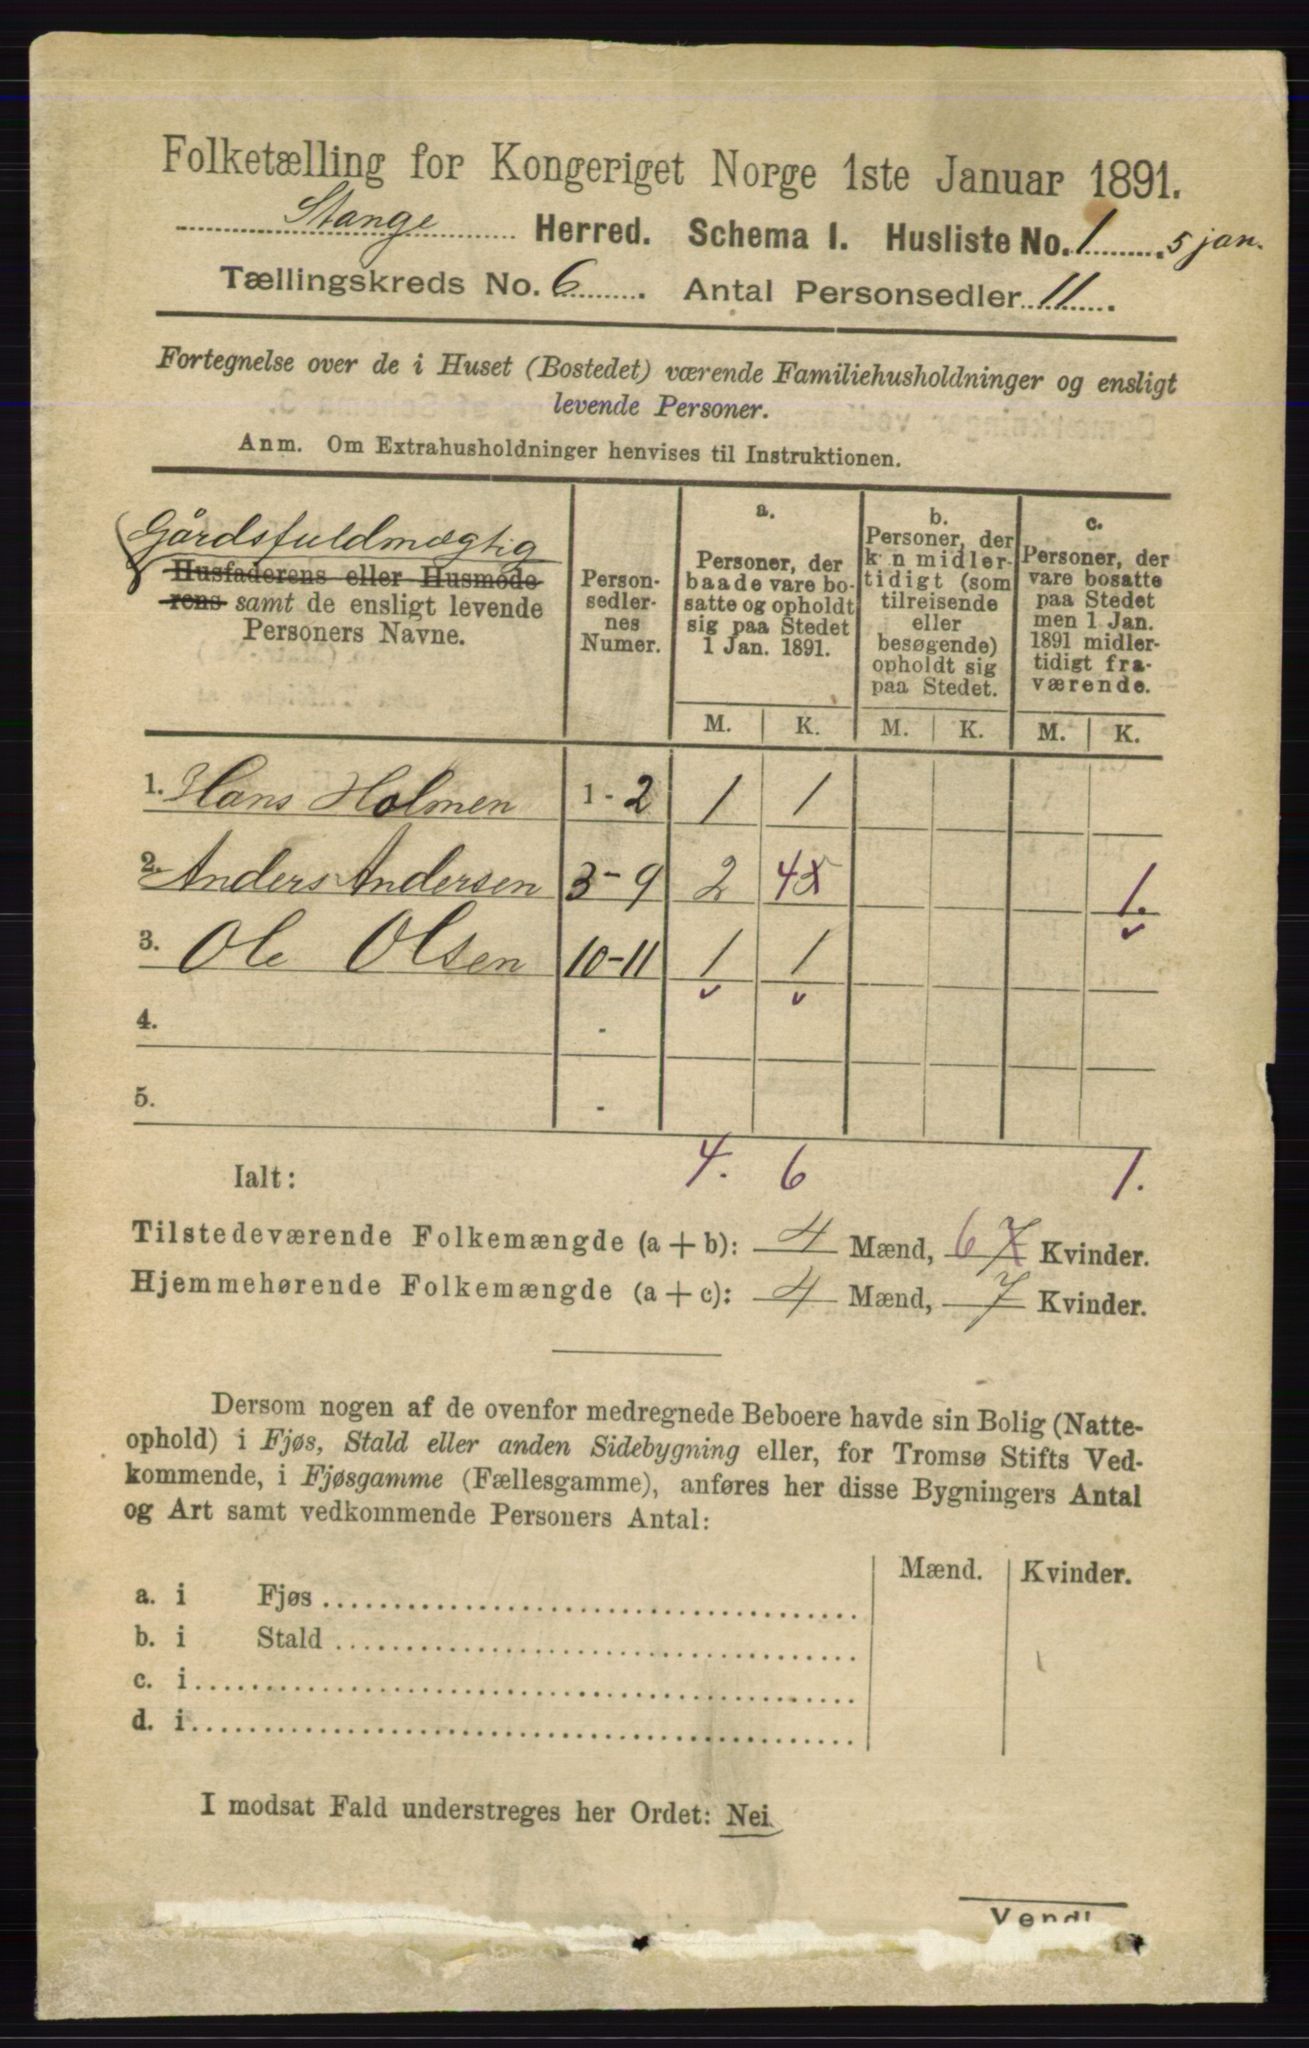 Folketælling for Kongeriget Norge 1ste Januar 1891.
Stange Herred. Schema I. Husliste No. 1. 5 jan.
Tællingskreds No. 6. Antal Personsedler 11.
Fortegnelse over de i Huset (Bostedet) værende Familiehusholdninger og ensligt
levende Personer.
Anm. Om Extrahusholdninger henvises til Instruktionen.
Gårdsfuldmægtig
Husfaderens eller Husmode-
rens samt de ensligt levende
Personers Navne.
Person-
sedler-
nes
Numer.
a.
Personer, der
baade vare bo-
satte og opholdt
sig paa Stedet
1 Jan. 1891.
b.
Personer, der
k n midler-
tidigt (som
tilreisende
eller
besøgende)
opholdt sig
paa Stedet.
c.
Personer, der
vare bosatte
paa Stedet
men 1 Jan.
1891 midler-
tidigt fra-
værende.
M. K. M. K. M. K.
1. Hans Holmen 1 - 2 1 1
2. Anders Andersen 3 - 9 2 4 1.
3. Ole Olsen 10 - 11 1 1
4. -
5. -
Ialt: 4. 6 1.
Tilstedeværende Folkemængde (a + b): 4 Mænd, 6 7 Kvinder.
Hjemmehørende Folkemængde (a + c): 4 Mænd, 7 Kvinder.
Dersom nogen af de ovenfor medregnede Beboere havde sin Bolig (Natte-
ophold) i Fjøs, Stald eller anden Sidebygning eller, for Tromsø Stifts Ved-
kommende, i Fjøsgamme (Fællesgamme), anføres her disse Bygningers Antal
og Art samt vedkommende Personers Antal:
Mænd. Kvinder.
a. i Fjøs
b. i Stald
c. i
d. i
I modsat Fald understreges her Ordet: Nei
Vend!